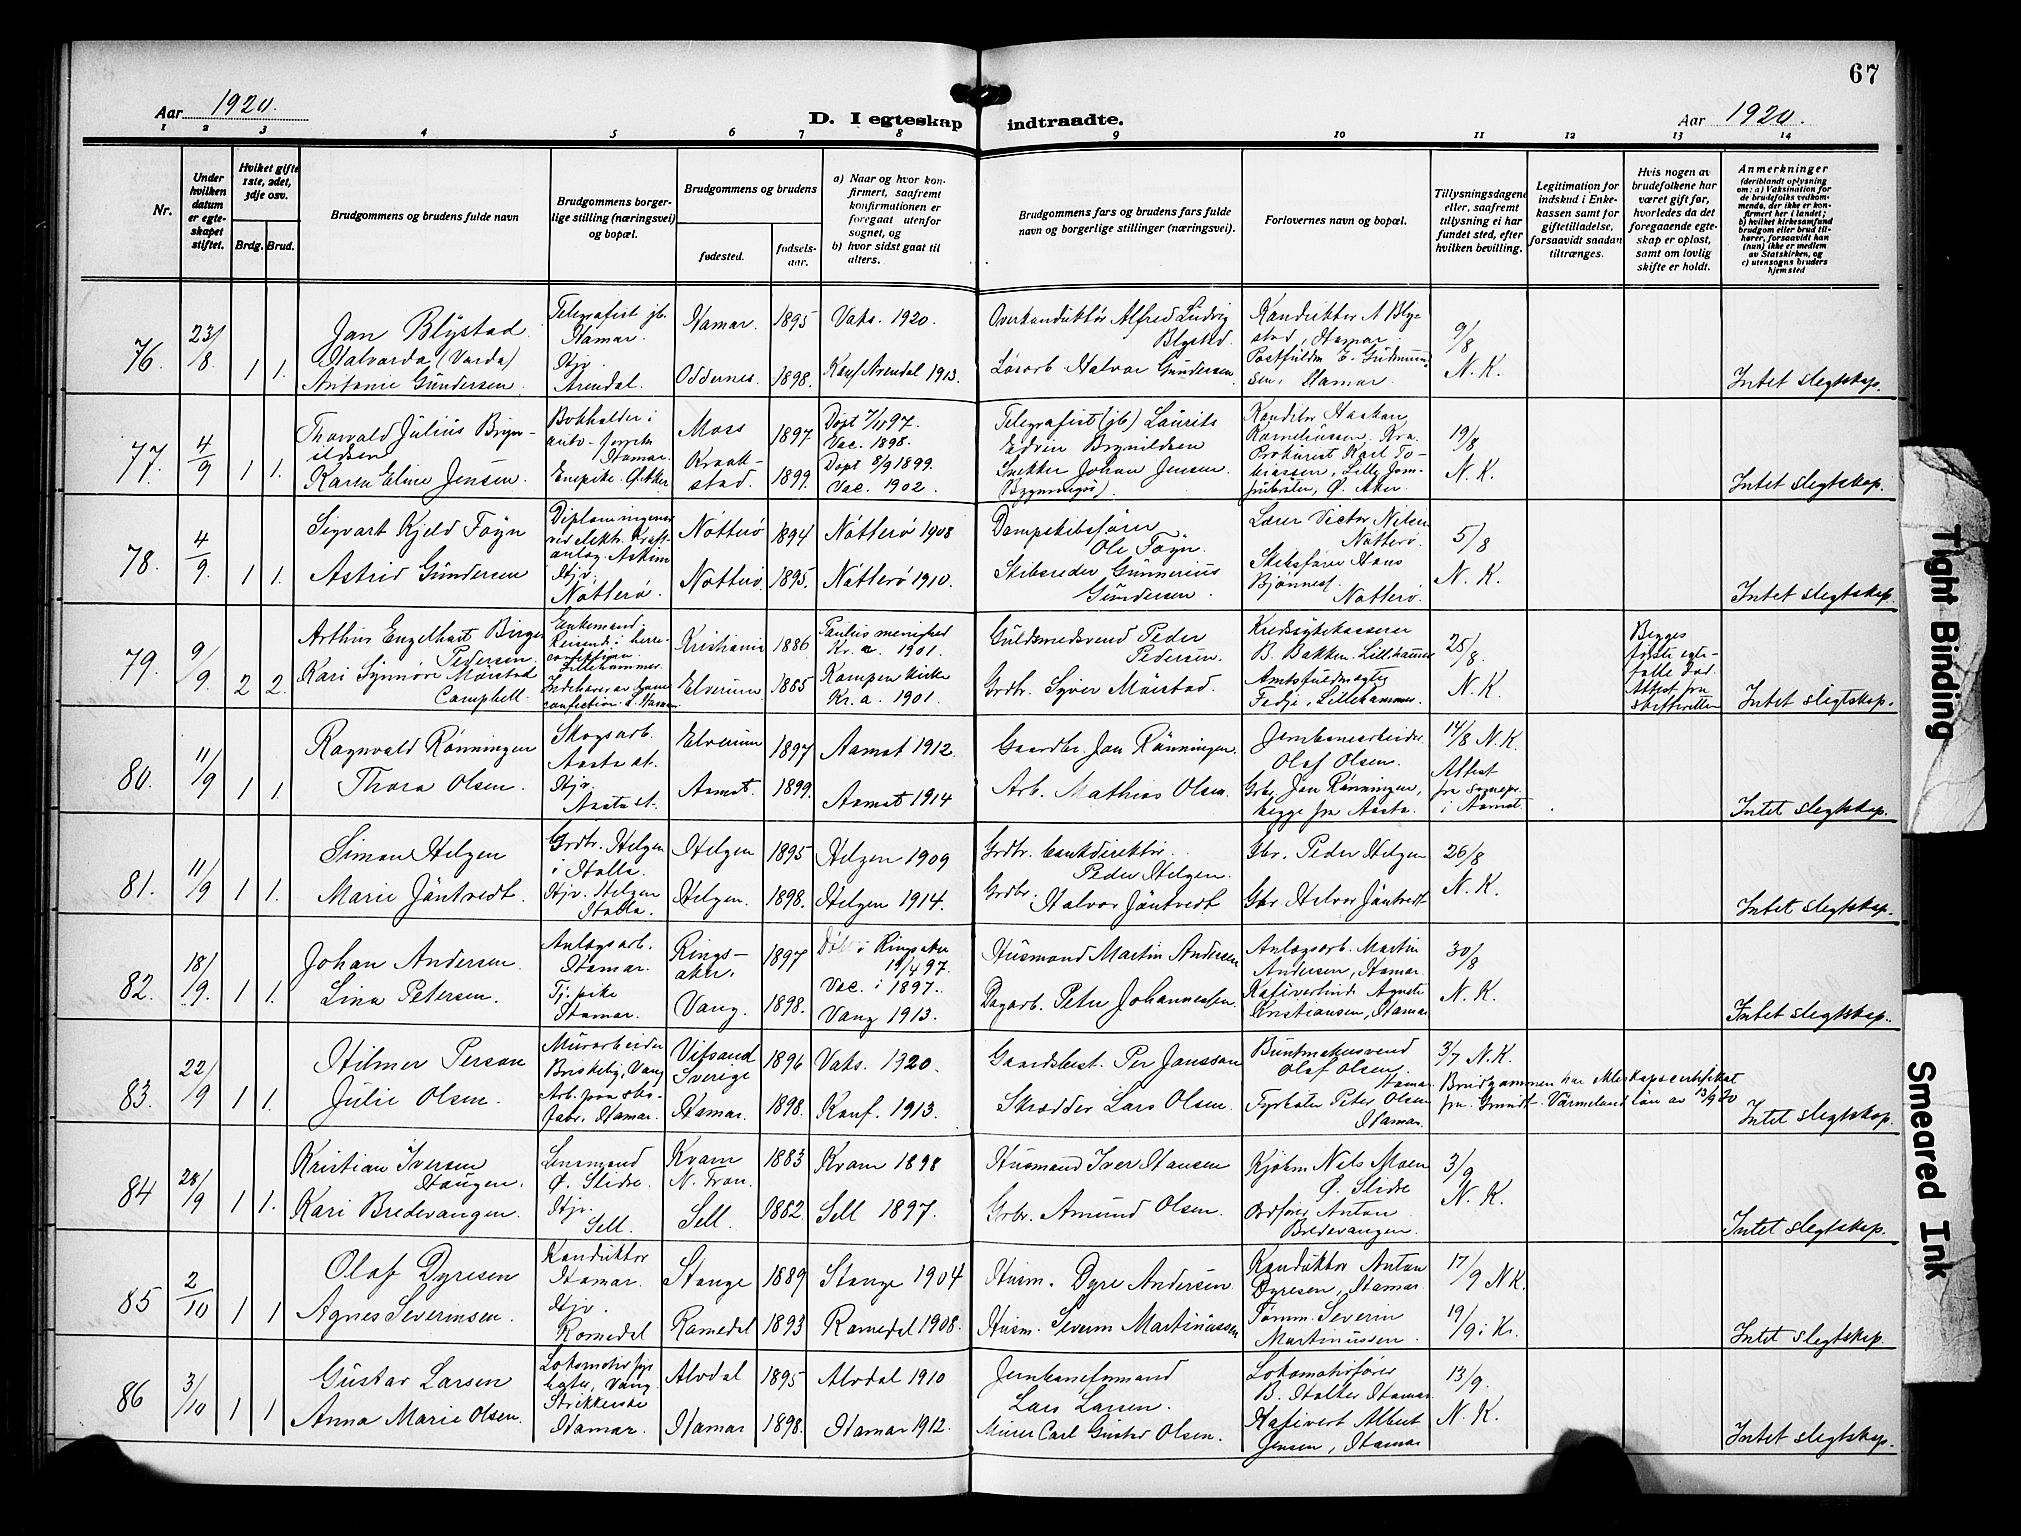 67
Aar 1920.
D. I egteskap indtraadte.
Aar 1920.
1 2 3 4 5 6 7 8 9 10 11 12 13 14
Nr.
Under hvilken datum er egteskapet stiftet.
Hvilket gifte 1ste, 2det, 3dje osv.
Brdg. Brud.
Brudgommens og brudens fulde navn
Brudgommens borgerlige stilling (næringsvei) og bopæl.
Brudgommens og brudens
fødested.
fødselsaar.
a) Naar og hvor konfirmert, saafremt konfirmationen er foregaat utenfor sognet, og
b) hvor sidst gaat til alters.
Brudgommens fars og brudens fars fulde navn og borgerlige stillinger (næringsvei).
Forlovernes navn og bopæl.
Tillysningsdagene eller, saafremt tillysning ei har fundet sted, efter hvilken bevilling.
Legitimation for indskud i Enkekassen samt for giftetilladelse, forsaavidt saadan tiltrænges.
Hvis nogen av brudefolkene har været gift før, hvorledes da det foregaaende egteskap er opløst, samt om lovlig skifte er holdt.
Anmerkninger
(deriblandt oplysning om: a) Vaksination for de brudefolks vedkommende, der ikke er konfirmert her i landet; b) hvilket kirkesamfund brudgom eller brud tilhører, forsaavidt han (hun) ikke er medlem av Statskirken, og c) utensogns bruders hjemsted
76. 23/8 1 1. Jan Blystad. Telegrafist jb. Hamar. Hamar. 1895 Vaks. 1920. Overkonduktør Alfred Ludvig Blystad. Konduktør A Blystad, Hamar. 9/8
Halvarda (Varda) Antonie Gundersen. Hjv. Arendal. Oddernes. 1898. Konf Arendal 1913. Løsarb Halvor Gundersen. Postfuldm E. Gudmundsen, Hamar. N. K. Intet slegtskap.
77. 4/9 1 1. Thorvald Julius Brynildsen Bokholder i auto-forretn Hamar. Moss 1897 Døpt 7/11 97. Vac. 1898. Telegrafist (jb) Laurits Edvin Brynildsen Konditor Haakon Korneliussen. Kra. 19/8
Karen Eline Jensen. Enepike. Ø. Aker Kraakstad. 1899. Døpt 8/9 1899. Vac. 1902. Snekker Johan Jensen. Prokurist Karl Tobiassen, Ø. Aker. N. K. Intet slegtskap.
78. 4/9. 1 1. Sigvart Kjeld Føyn Diplomingeniør ved elektr. Kraftanlæg. Askim Nøtterø 1894 Nøtterø 1908 Dampskibsfører Ole Føyn. Lærer Victor Nilsen Nøtterø. 5/8
Astrid Gundersen Hjv. Nøtterø. Nøtterø. 1895. Nøtterø 1910. Skibsreder Gunnerius Gundersen. Skibsfører Hans Bjønness Nøtterø. N. K. Intet slegtskap.
79. 9/9. 2 2. Arthur Engelhart Birger Pedersen. Enkemand. Reisende i herreconfektion. Lillehammer. Kristiania 1886 Paulus menighed Kr. a. 1901. Guldsmedsvend Peder Pedersen. Kredssykekasserer B. Bakken. Lillehammer 25/8. Begges første egtefælle død. Attest fra skifteretten
Kari Synnøve Mørstad Campbell. Indehaver av damconfection. Hamar. Elverum 1885 Kampen kirke Kr. a. 1901. Grdbr. Syver Mørstad. Amtsfuldmægtig Fedje, Lillehammer. N. K. Intet slegtskap.
80. 11/9 1 1. Ragnvald Rønningen Skogsarb. Aasta st. Elverum 1897 Aamot 1912. Gaardbr. Jon Rønningen. Jernbanearbeider Olaf Olsen. 14/8 N. K.
Thora Olsen. Hjv. Aasta st. Aamot. 1899. Aamot 1914 Arb. Mathias Olsen. Grbr. Jon Rønningen, begge fra Aasta. Attest fra sognepr. i Aamot. Intet slegtskap.
81. 11/9 1 1. Simon Helgen Grdbr. Helgen i Holla. Helgen 1895 Helgen 1909 Grdbr. bankdirektør. Peder Helgen. Gbr. Peder Helgen 26/8
Marie Jøntvedt. Hjv. Helgen Holla. Helgen. 1898. Helgen 1914. Grdbr. Halvor Jøntvedt Gbr Halvor Jøntvedt N. K. Intet slegtskap.
82. 18/9. 1 1. Johan Andersen. Anlægsarb. Hamar. Ringsaker. 1897 Døbt i Ringsaker 19/4 97. Vac. i 1897. Husmand Martin Andersen Anlægsarb. Martin Andersen, Hamar. 30/8
Lina Petersen. Tj. pike Hamar. Vang. 1898. Vang 1913. Dagarb. Peter Johannessen. Kafévertinde Agnete Kristiansen, Hamar N. K. Intet slegtskap.
83. 22/9 1 1. Hilmer Person Murarbeider Briskeby, Vang Vitsand Sverige 1896 Vaks. 1920. Gaardsbest. Per Jansson Buntmakersvend Olaf Olsen. Hamar 3/7 N. K.
Julie Olsen. Arb. paa skofabr. Hamar. Hamar. 1898. Konf. 1913. Skrædder Lars Olsen. Fyrbøter Peter Olsen Hamar. Brudgommen har ekteskapscertifikat fra Värmeland län av 13/9 20 Intet slegtskap.
84 28/9 1 1. Kristian Iversen Haugen. Lensmand Ø. Slidre. Kvam N. Fron. 1883 Kvam 1898 Husmand Iver Hansen Kjøbm. Nils Moen Ø. Slidre 3/9
Kari Bredevangen. Hjv. Sell. Sell. 1882. Sell 1897. Grbr. Amund Olsen. Ordfører Anton Bredevangen. N. K. Intet slegtskap.
85 2/10 1 1 Olaf Dyresen Konduktør Hamar. Stange 1889 Stange 1904 Husm. Dyre Andersen Konduktør Anton Dyresen, Hamar. 17/9 N K.
Agnes Severinsen. Hjv. Romedal Romedal 1893 Romedal 1908. Husm. Severin Martinussen Tømm. Severin Martinussen. 19/9 i Kr. Intet slegtskap.
86 3/10 1 1 Gustav Larsen Lokomotivfyrbøter, Vang. Alvdal 1895 Alvdal 1910 Jernbaneformand Lars Larsen. Lokomotivfører B. Holter Hamar 13/9.
Anna Marie Olsen. Strikkerske Hamar. Hamar 1898. Hamar 1912. Murer Carl Gustav Olsen. Kafévert Albert Jensen, Hamar N. K. Intet slegtskap.
Tight Binding
Smeared Ink